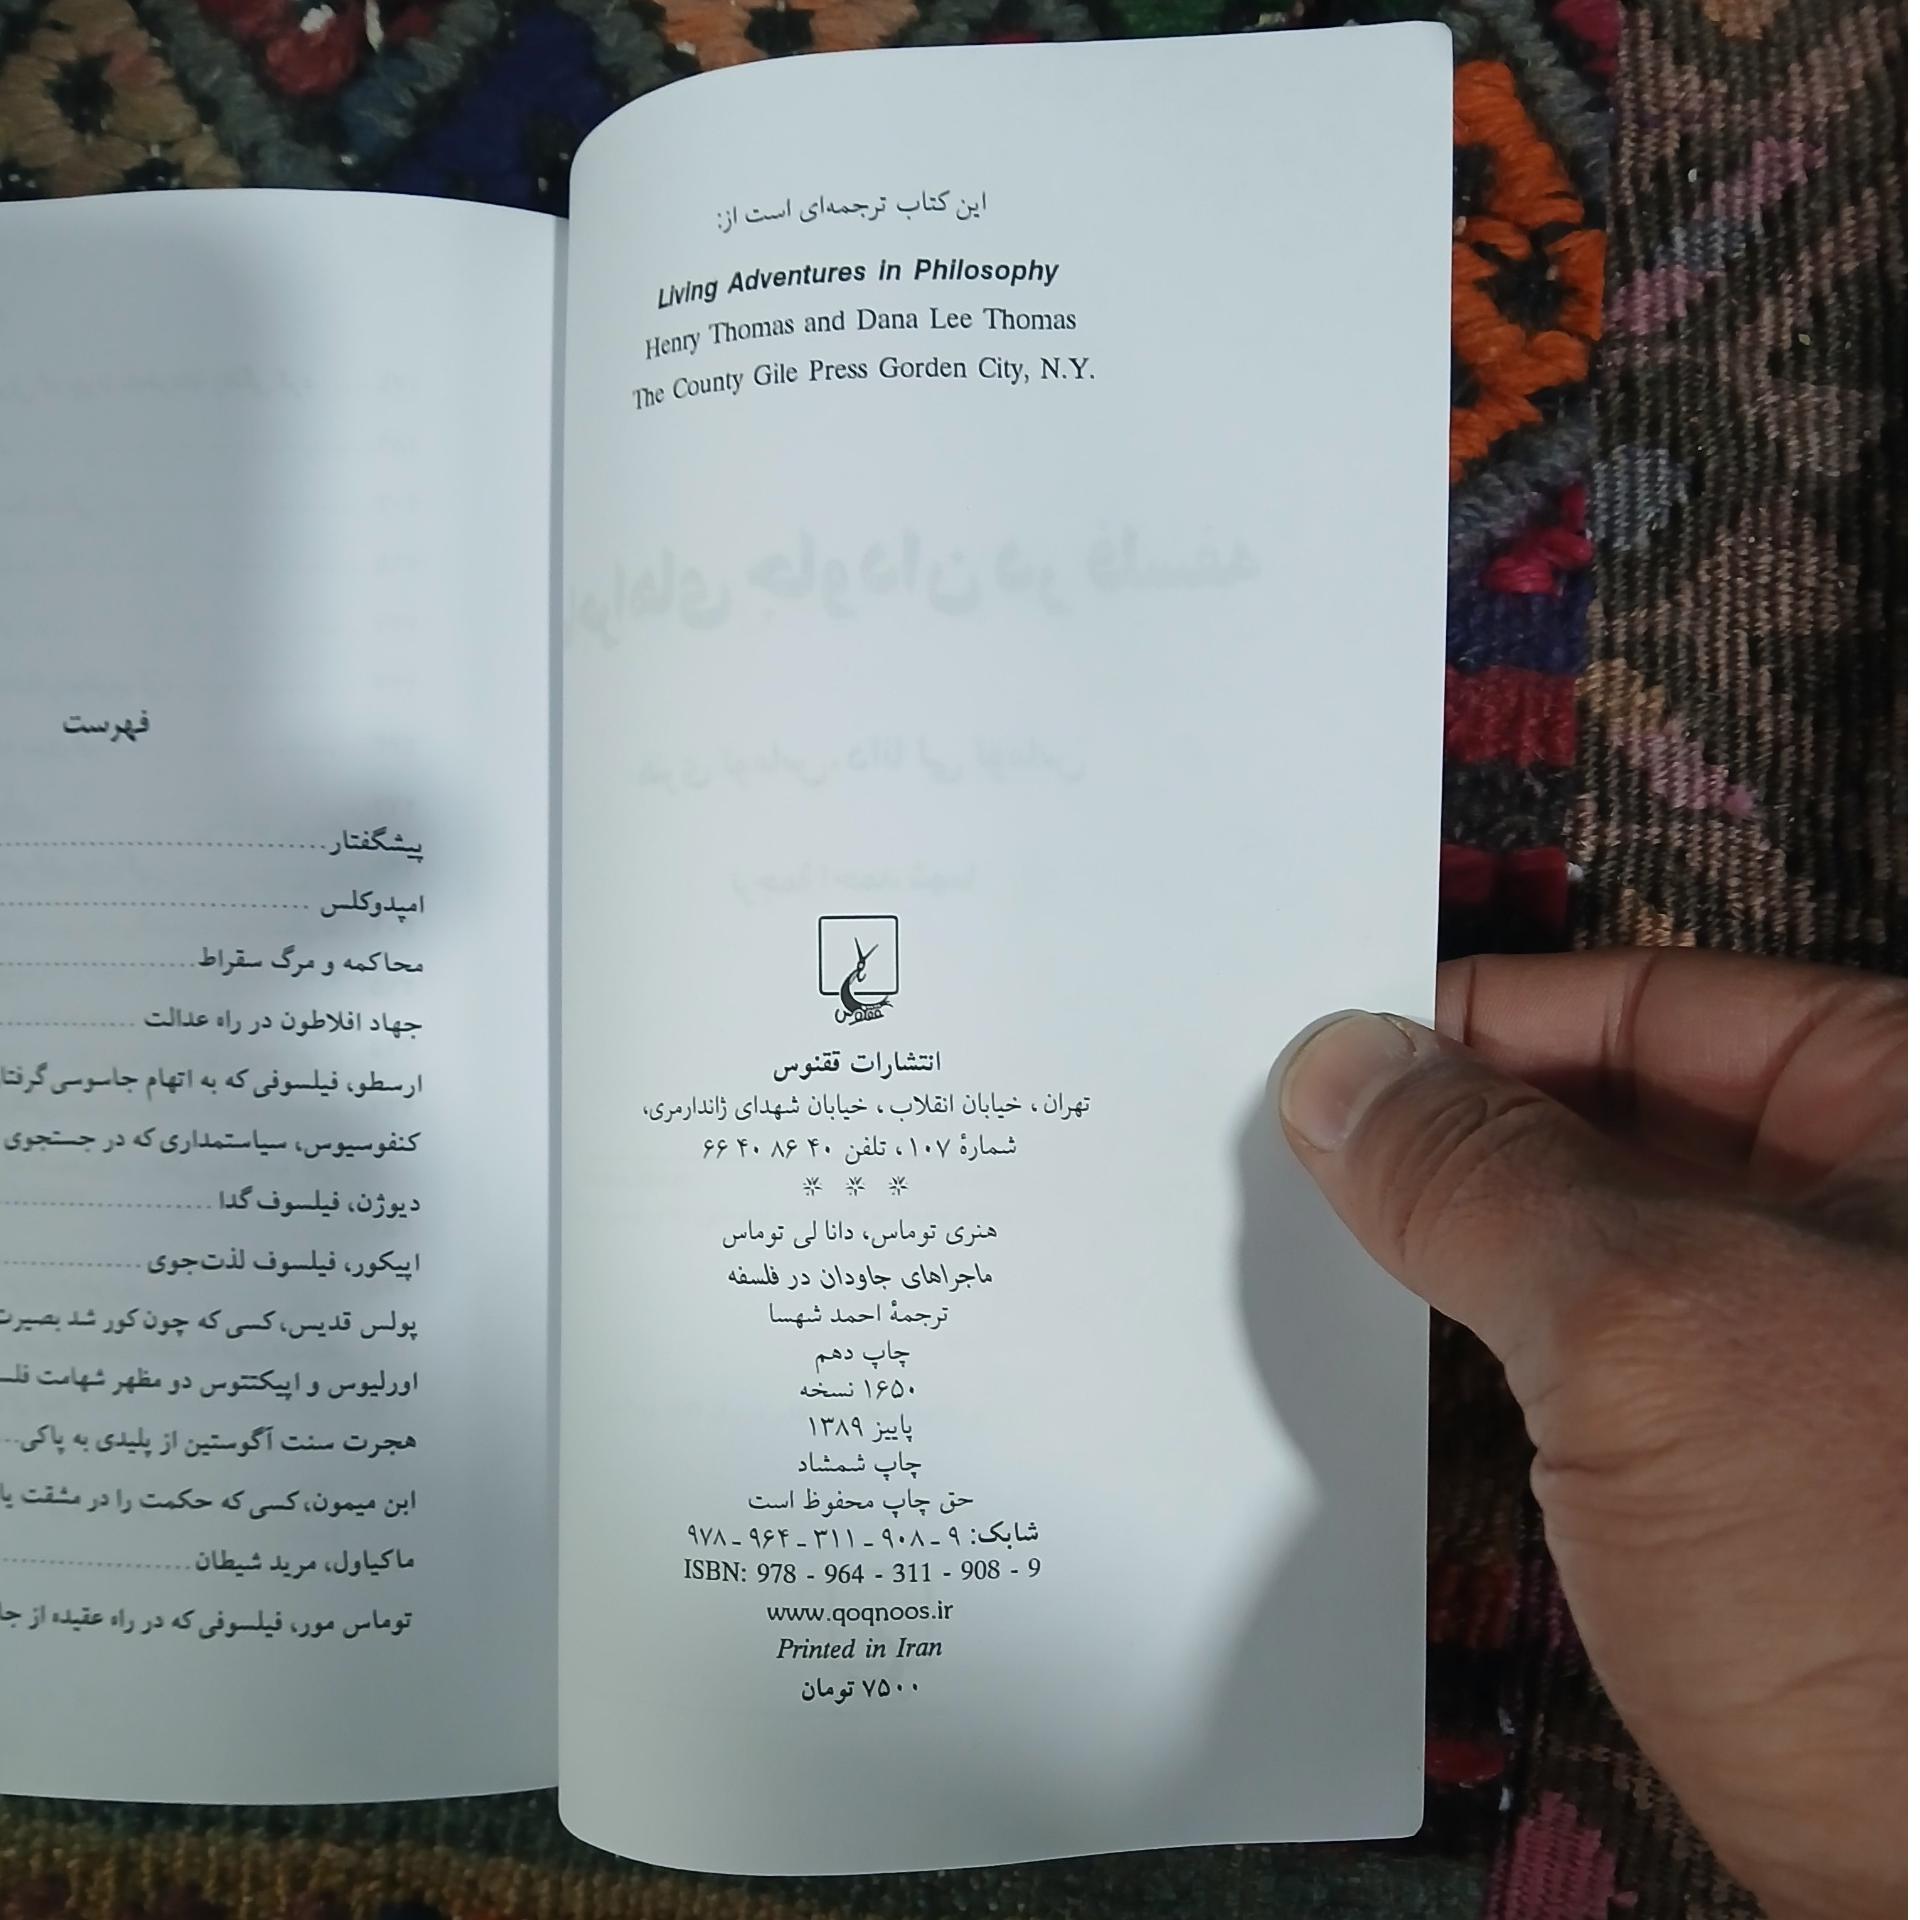 این کتاب ترجمه‌ای است از:
Living Adventures in Philosophy
Henry Thomas and Dana Lee Thomas
The County Gile Press Gorden City, N.Y.
ققنوس
انتشارات ققنوس
تهران، خیابان انقلاب، خیابان شهدای ژاندارمری،
شمارهٔ ۱۰۷، تلفن ۴۰ ۸۶ ۴۰ ۶۶
* * *
هنری توماس، دانا لی توماس
ماجراهای جاودان در فلسفه
ترجمهٔ احمد شهسا
چاپ دهم
۱۶۵۰ نسخه
پاییز ۱۳۸۹
چاپ شمشاد
حق چاپ محفوظ است
شابک: ۹ ـ ۹۰۸ ـ ۳۱۱ ـ ۹۶۴ ـ ۹۷۸
ISBN: 978 - 964 - 311 - 908 - 9
www.qoqnoos.ir
Printed in Iran
۷۵۰۰ تومان
فهرست
پیشگفتار
امپدوکلس
محاکمه و مرگ سقراط
جهاد افلاطون در راه عدالت
ارسطو، فیلسوفی که به اتهام جاسوسی
کنفوسیوس، سیاستمداری که در جستجوی
دیوژن، فیلسوف گدا
اپیکور، فیلسوف لذت‌جوی
پولس قدیس، کسی که چون کور شد
اورلیوس و اپیکتتوس دو مظهر شهامت
هجرت سنت آگوستین از پلیدی به پاکی
ابن میمون، کسی که حکمت را در مشقت
ماکیاول، مرید شیطان
توماس مور، فیلسوفی که در راه عقیده از